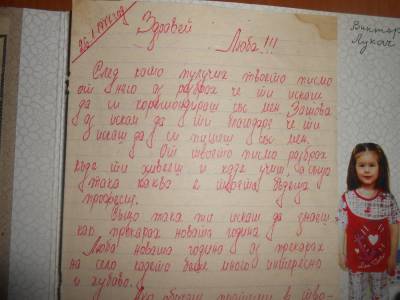 26. I 1977 год
Здравей
Люба!!!
След като получих твоето писмо
от него аз разбрах че ти искаш
да си кореспондираш със мен. Затова
аз искам да ти благодаря че ти
искаш да си пишеш със мен.
От твоето писмо разбрах
къде ти живееш и къде учиш, а също
така каква е твоята бъдеща
професия.
Също така ти искаш да знаеш
как прекарах новата година
Люба новата година аз прекарах
на село където беше много интересно
и хубаво.
Виктор
Лукач